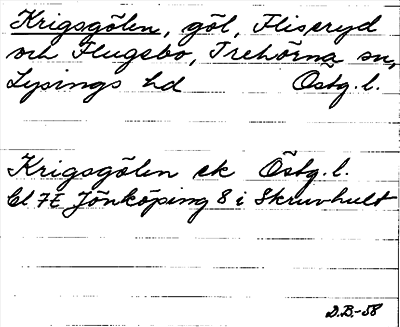 Krigsgölen, göl, Fliseryd
och Flugebo, Trehörna sn,
Lysings hd Östg. l.
Krigsgölen ek Östg. l.
Bl 7E Jönköping 8 i Skruvhult
D.B.-58